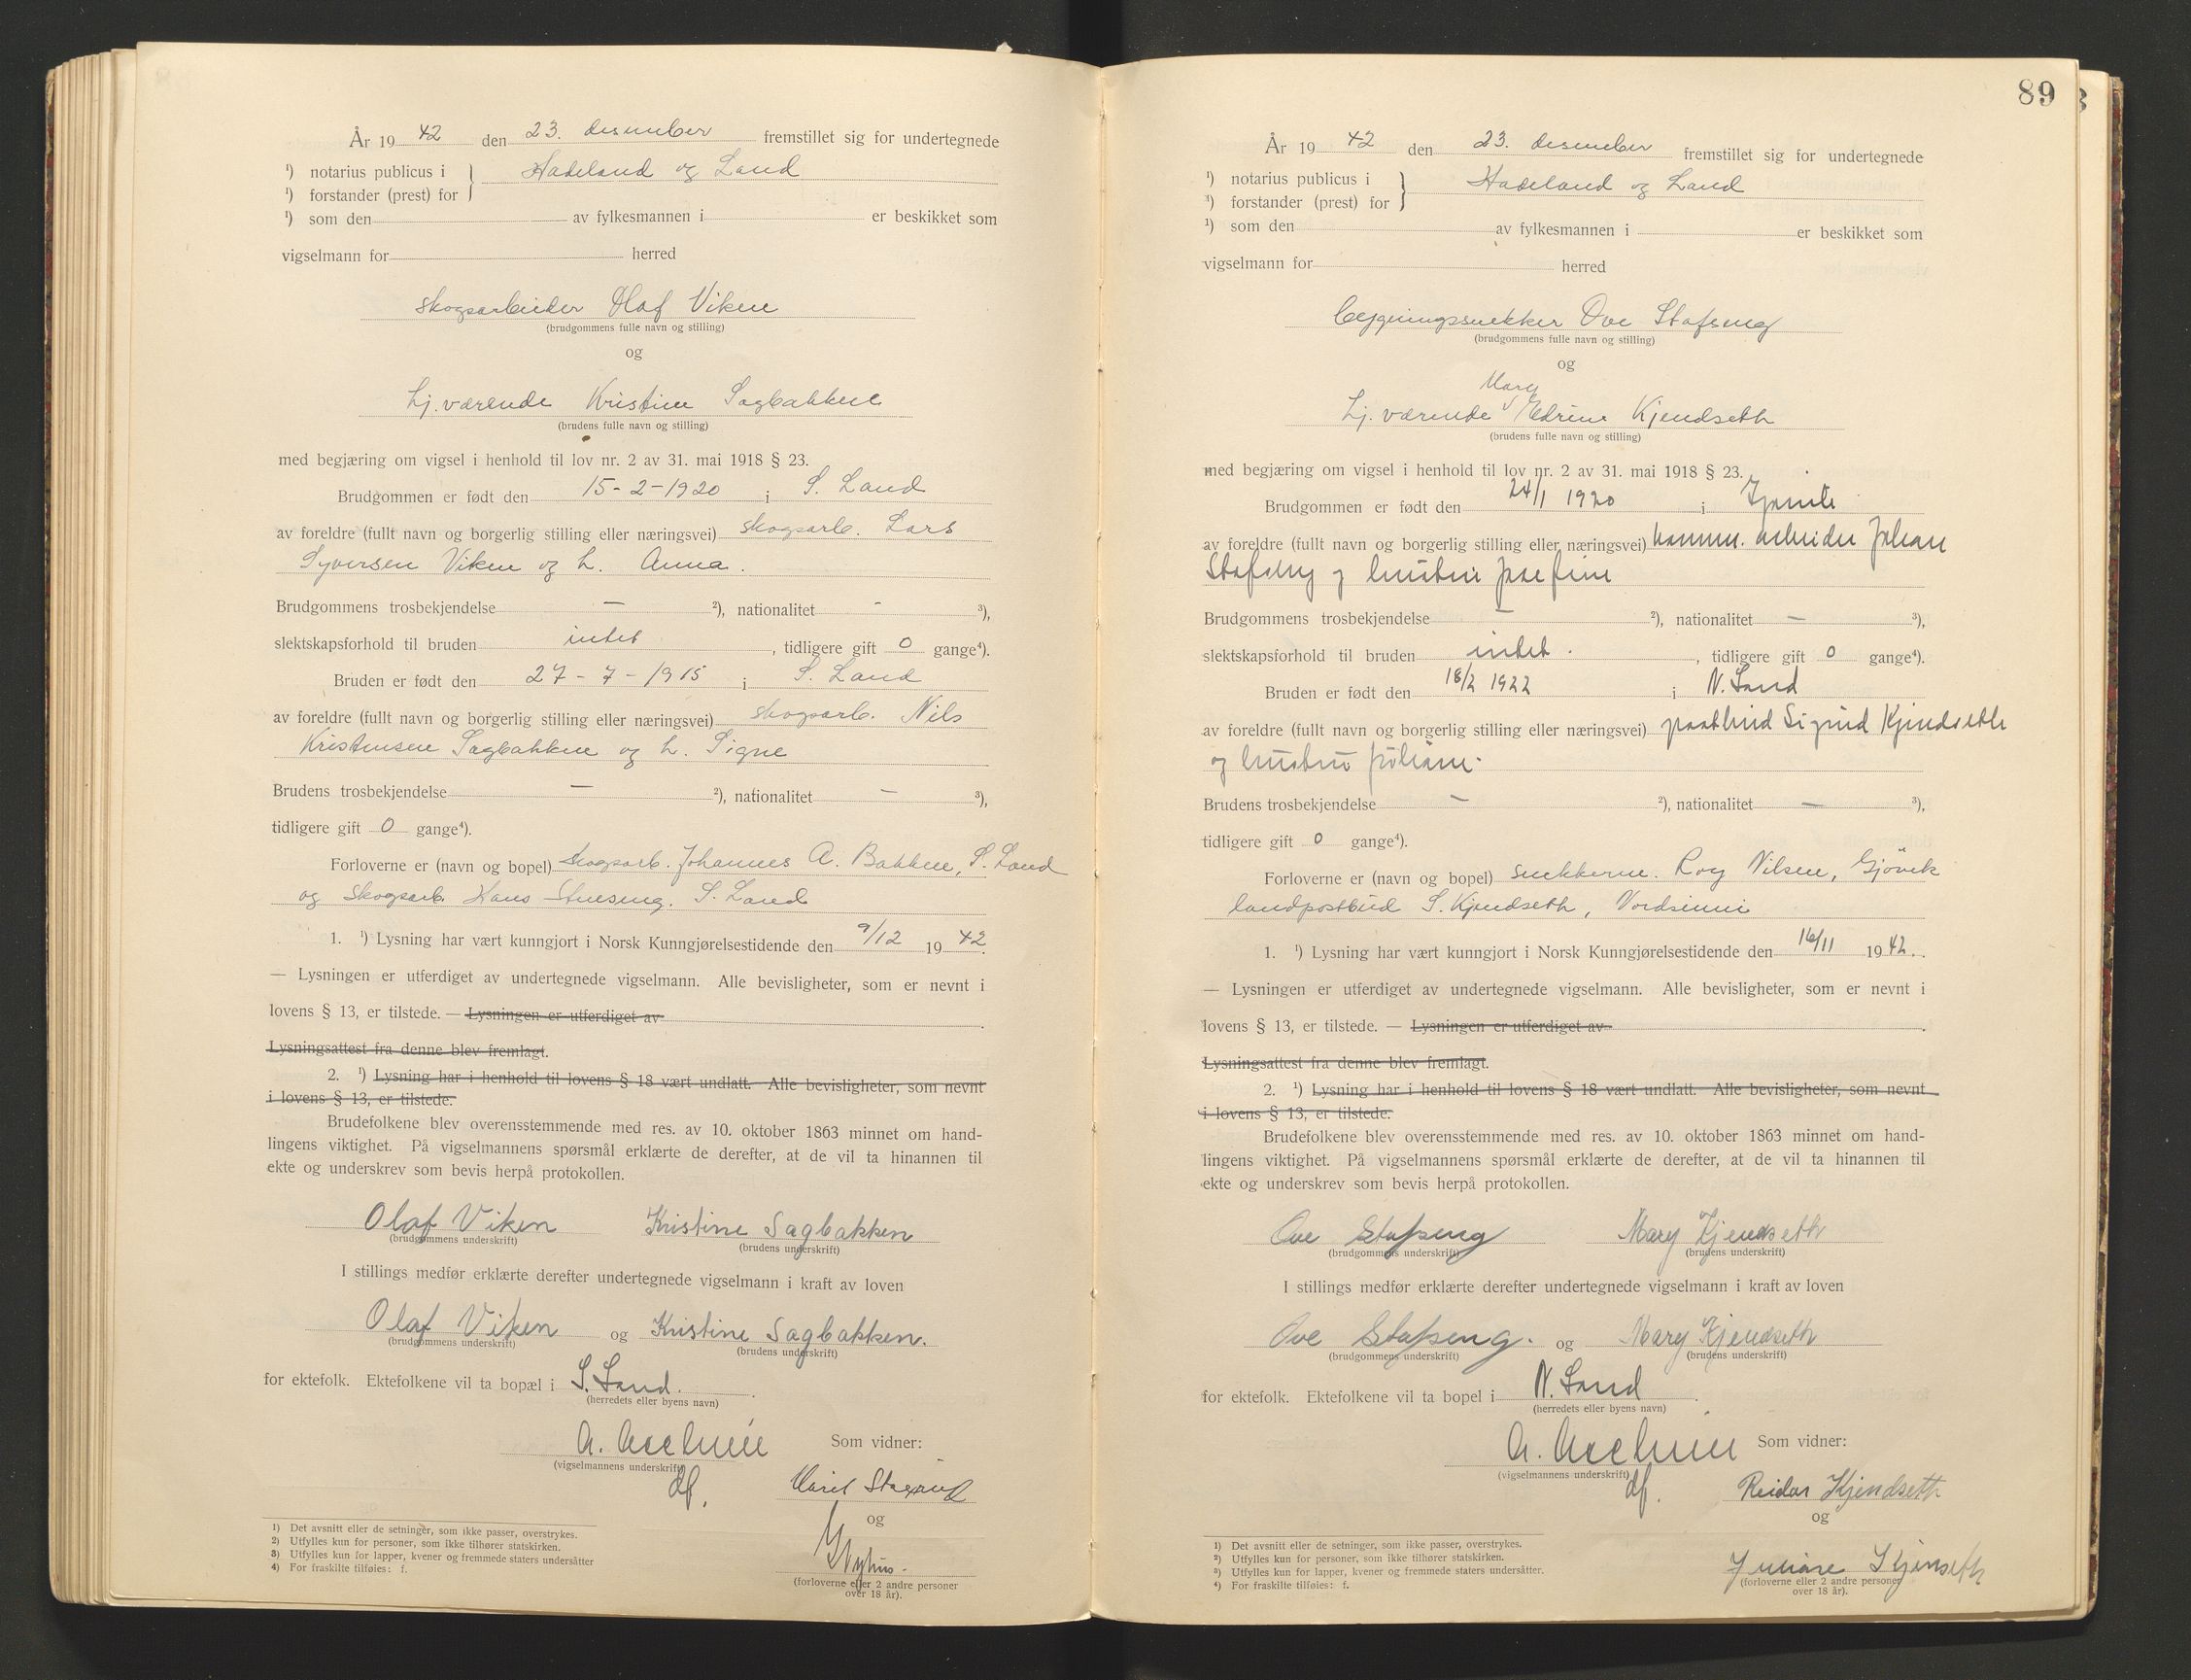 År 19 42 den 23. desember fremstillet sig for undertegnede
¹) notarius publicus i } Hadeland og Land
¹) forstander (prest) for
¹) som den av fylkesmannen i er beskikket som
vigselmann for herred
skogsarbeider Olaf Viken
(brudgommens fulle navn og stilling)
og
hj. værende Kristine Sagbakken
(brudens fulle navn og stilling)
med begjæring om vigsel i henhold til lov nr. 2 av 31. mai 1918 § 23.
Brudgommen er født den 15-2-1920 i S. Land
av foreldre (fullt navn og borgerlig stilling eller næringsvei) skogsarb. Lars
Syversen Viken og h. Anna.
Brudgommens trosbekjendelse — ²), nationalitet - ³),
slektskapsforhold til bruden intet, tidligere gift 0 gange⁴).
Bruden er født den 27-7-1915 i S. Land
av foreldre (fullt navn og borgerlig stilling eller næringsvei) skogsarb. Nils
Kristensen Sagbakken og h. Signe
Brudens trosbekjendelse — ²), nationalitet — ³),
tidligere gift 0 gange⁴).
Forloverne er (navn og bopel) skogsarb. Johannes A. Bakken, S. Land
og skogsarb. Hans S. Land
1. ¹) Lysning har vært kunngjort i Norsk Kunngjørelsestidende den 9/12 19 42.
— Lysningen er utferdiget av undertegnede vigselmann. Alle bevisligheter, som er nevnt i
lovens § 13, er tilstede. — Lysningen er utferdiget av
Lysningsattest fra denne blev fremlagt.
2. ¹) Lysning har i henhold til lovens § 18 vært undlatt. Alle bevisligheter, som nevnt
i lovens § 13, er tilstede.
Brudefolkene blev overensstemmende med res. av 10. oktober 1863 minnet om hand-
lingens viktighet. På vigselmannens spørsmål erklærte de derefter, at de vil ta hinannen til
ekte og underskrev som bevis herpå protokollen.
Olaf Viken Kristine Sagbakken
(brudgommens underskrift) (brudens underskrift)
I stillings medfør erklærte derefter undertegnede vigselmann i kraft av loven
Olaf Viken og Kristine Sagbakken.
(brudgommens underskrift) (brudens underskrift)
for ektefolk. Ektefolkene vil ta bopæl i S. Land.
(herredets eller byens navn)
A. Som vidner:
(vigselmannens underskrift)
df.
og
(forloverne eller 2 andre personer
over 18 år).
1) Det avsnitt eller de setninger, som ikke passer, overstrykes.
2) Utfylles kun for personer, som ikke tilhører statskirken.
3) Utfylles kun for lapper, kvener og fremmede staters undersåtter
4) For fraskilte tilføies: f.
89
År 19 42 den 23. desember fremstillet sig for undertegnede
¹) notarius publicus i } Hadeland og Land
¹) forstander (prest) for
¹) som den av fylkesmannen i er beskikket som
vigselmann for herred
bygningssnekker Ove Stafseng
(brudgommens fulle navn og stilling)
og
Mary
hj. værende Kjendseth
(brudens fulle navn og stilling)
med begjæring om vigsel i henhold til lov nr. 2 av 31. mai 1918 § 23.
Brudgommen er født den 24/1 1920 i
av foreldre (fullt navn og borgerlig stilling eller næringsvei) kommu. arbeider Johan
Stafseng og hustru Josefine
Brudgommens trosbekjendelse — ²), nationalitet — ³),
slektskapsforhold til bruden intet., tidligere gift 0 gange⁴).
Bruden er født den 18/2 1922 i N. Land
av foreldre (fullt navn og borgerlig stilling eller næringsvei) postbud Sigurd Kjendseth
og hustru Juliane.
Brudens trosbekjendelse — ²), nationalitet — ³),
tidligere gift 0 gange⁴).
Forloverne er (navn og bopel) snekkerne. Roy Nilsen, Gjövik
landpostbud S. Kjendseth, Nordsinni
1. ¹) Lysning har vært kunngjort i Norsk Kunngjørelsestidende den 16/11 19 42.
— Lysningen er utferdiget av undertegnede vigselmann. Alle bevisligheter, som er nevnt i
lovens § 13, er tilstede. — Lysningen er utferdiget av
Lysningsattest fra denne blev fremlagt.
2. ¹) Lysning har i henhold til lovens § 18 vært undlatt. Alle bevisligheter, som nevnt
i lovens § 13, er tilstede.
Brudefolkene blev overensstemmende med res. av 10. oktober 1863 minnet om hand-
lingens viktighet. På vigselmannens spørsmål erklærte de derefter, at de vil ta hinannen til
ekte og underskrev som bevis herpå protokollen.
Ove Stafseng Mary Kjendseth
(brudgommens underskrift) (brudens underskrift)
I stillings medfør erklærte derefter undertegnede vigselmann i kraft av loven
Ove Stafseng. og Mary Kjendseth
(brudgommens underskrift) (brudens underskrift)
for ektefolk. Ektefolkene vil ta bopel i N. Land.
(herredets eller byens navn)
A. Som vidner:
(vigselmannens underskrift)
df. Reidar Kjendseth
og
Juliane Kjenseth
(forloverne eller 2 andre personer
over 18 år).
1) Det avsnitt eller de setninger, som ikke passer, overstrykes.
2) Utfylles kun for personer, som ikke tilhører statskirken.
3) Utfylles kun for lapper, kvener og fremmede staters undersåtter.
4) For fraskilte tilføies: f.